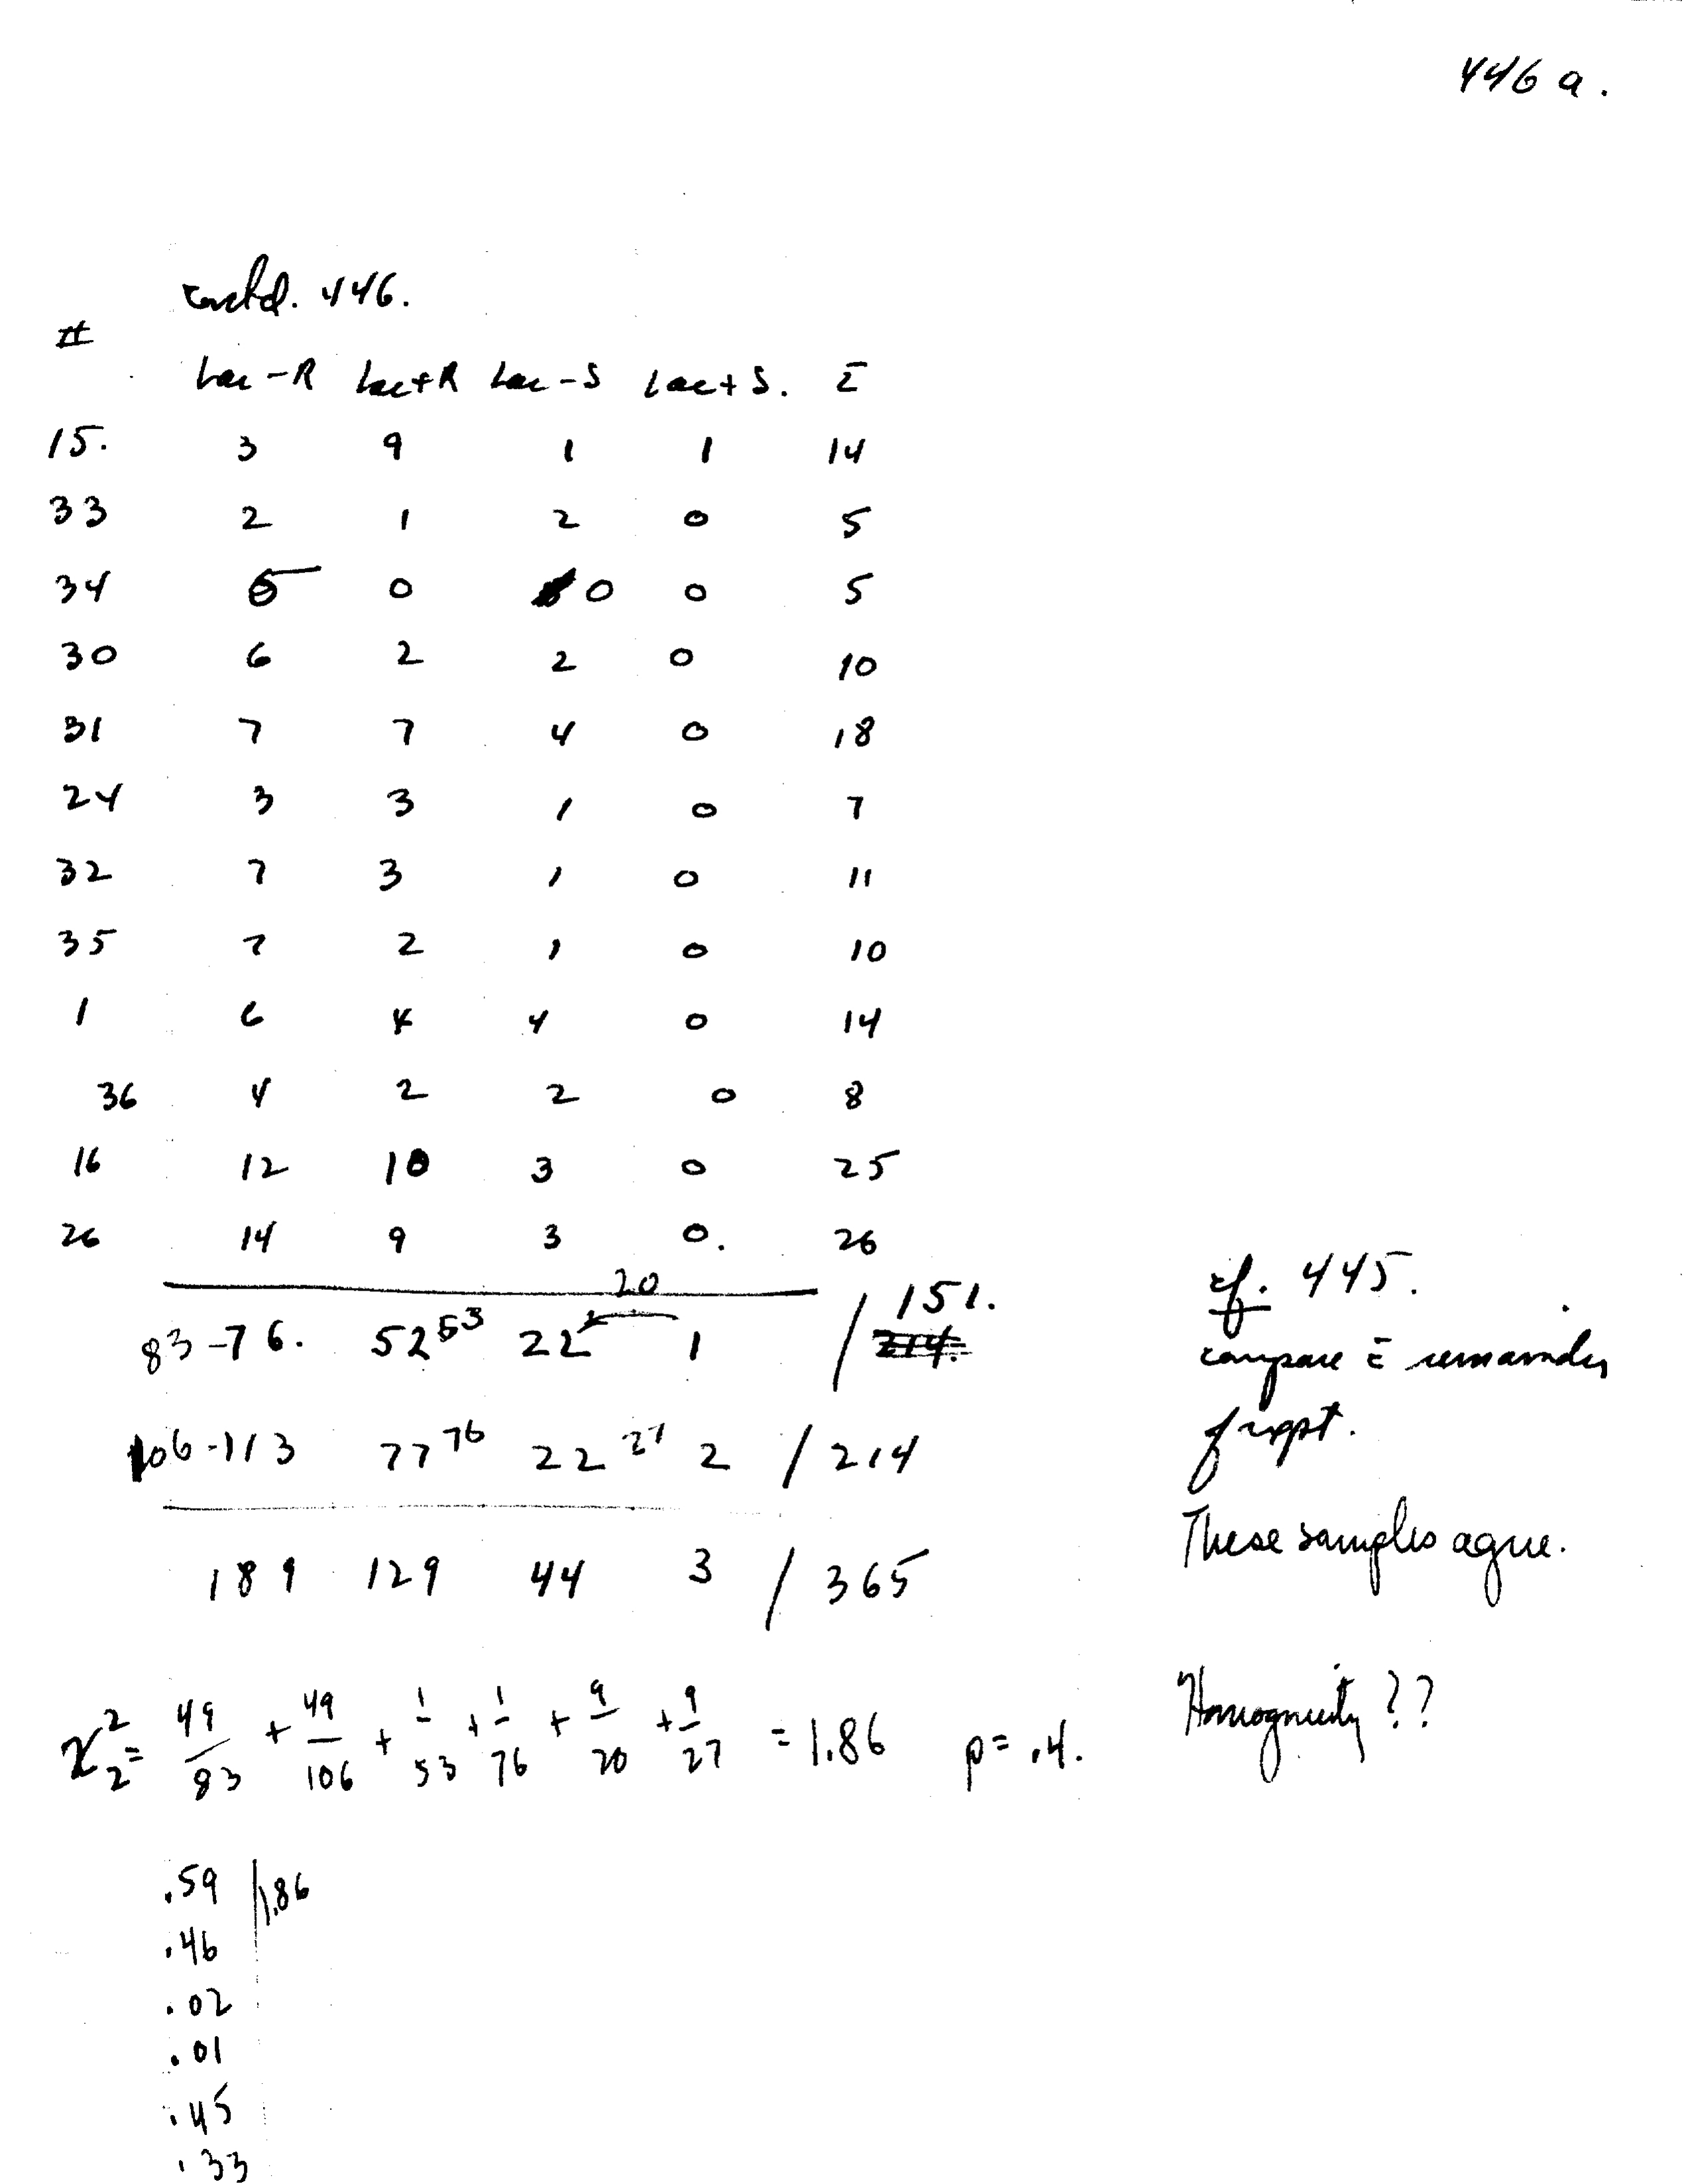 446 a.
contd. 446.
#
Lac-R Lac+R Lac-S Lac+S. Σ
15. 3 9 1 1 14
33 2 1 2 0 5
34 5 0 0 0 5
30 6 2 2 0 10
31 7 7 4 0 18
24 3 3 1 0 7
32 7 3 1 0 11
35 7 2 1 0 10
1 6 4 4 0 14
36 4 2 2 0 8
16 12 10 3 0 25
26 14 9 3 0. 26
20
83-76. 52 53 22 1 / 151.
214.
106-113 77 76 22 27 2 / 214
189 129 44 3 / 365
cf. 445.
compare c̄ remainder
of expt.
These samples agree.
Homogneity ??
χ²₂= 49/83 + 49/106 + 1/53 + 1/76 + 9/20 + 9/27 = 1.86 p= .4.
.59 1.86
.46
.02
.01
.45
.33